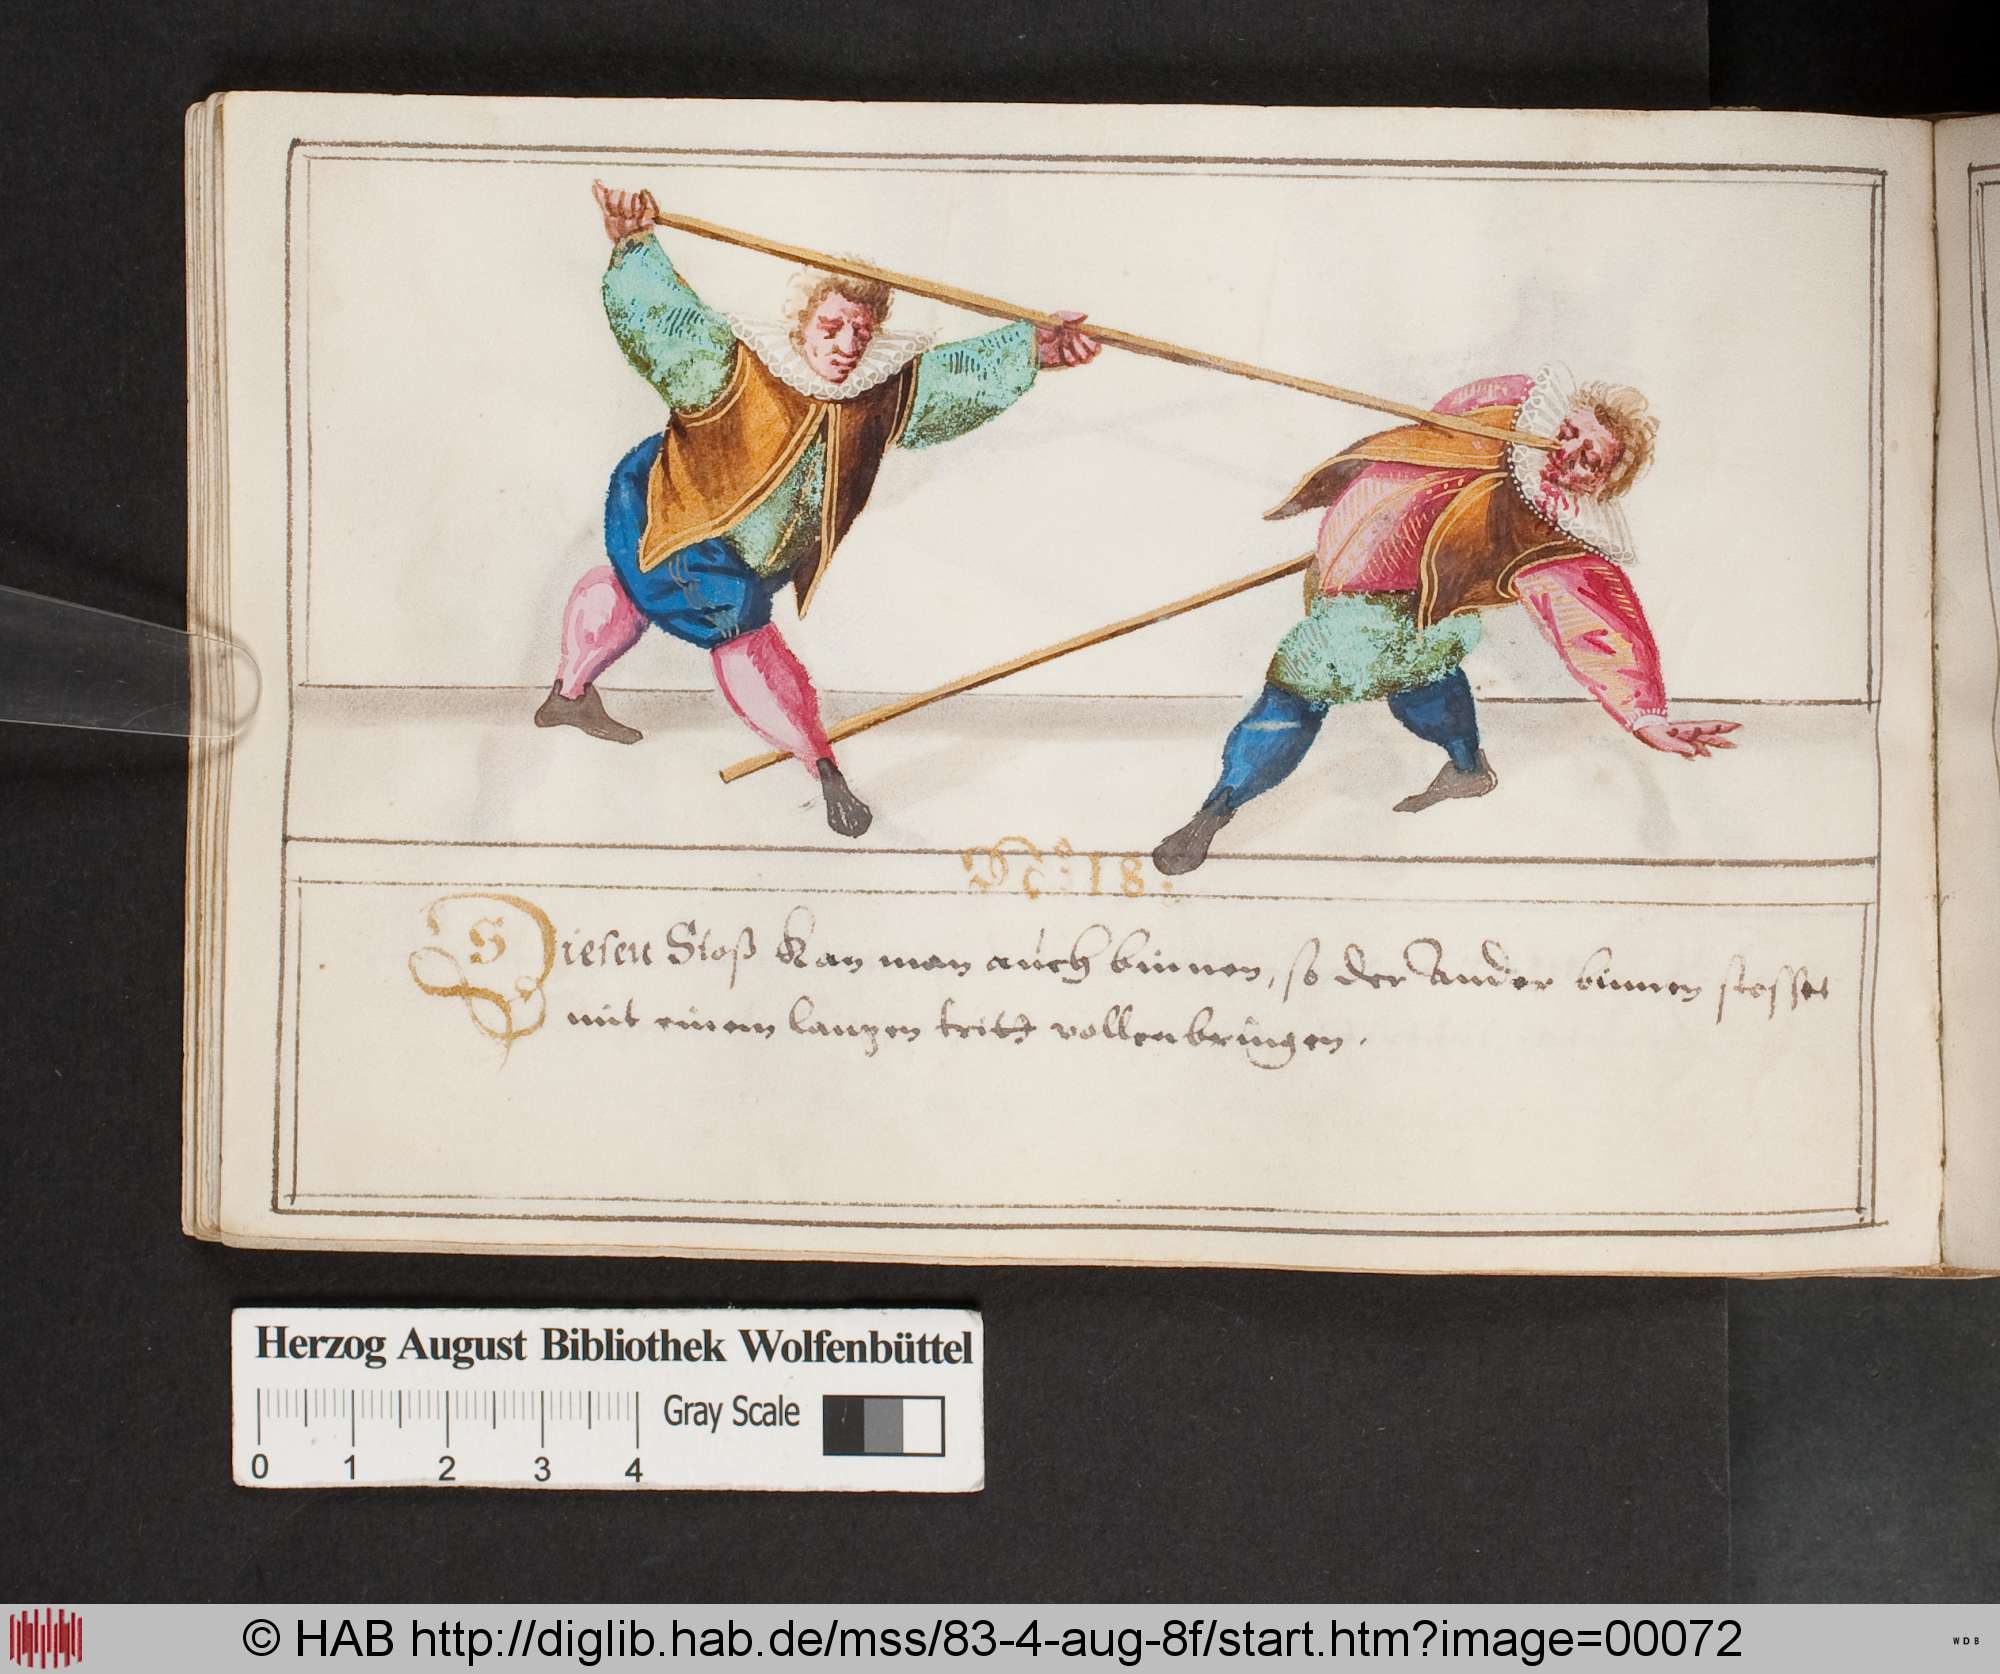 No 18.
Diesen Stoß Kan man auch binnen, so der Ander binnen stosset
mit einem langen tritt vollenbringen.
Herzog August Bibliothek Wolfenbüttel
Gray Scale
0 1 2 3 4
© HAB http://diglib.hab.de/mss/83-4-aug-8f/start.htm?image=00072
WDB